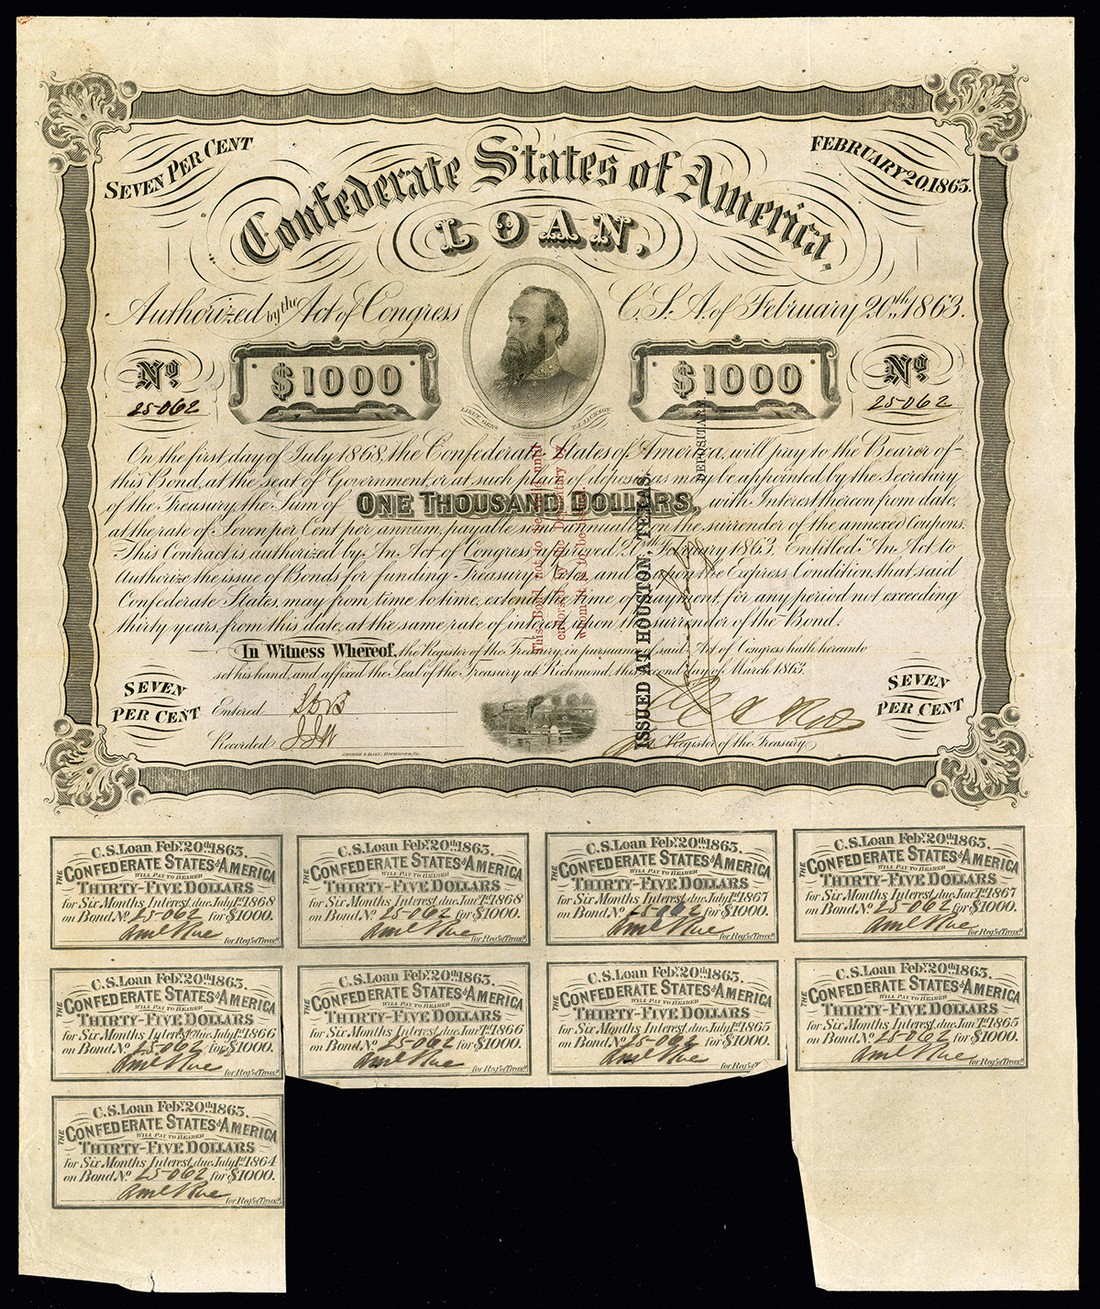 SEVEN PER CENT
FEBRUARY 20, 1863.
Confederate States of America,
LOAN,
Authorized by the Act of Congress C.S.A. of February 20th 1863.
No. $1000 $1000 No.
25062 25062
LIEUT. GENL. T.J. JACKSON
On the first day of July 1868, the Confederate States of America, will pay to the Bearer of
this Bond, at the seat of Government, or at such place of deposit as may be appointed by the Secretary
of the Treasury, the Sum of ONE THOUSAND DOLLARS, with Interest thereon from date,
at the rate of Seven per Cent per annum, payable semi-annually on the surrender of the annexed Coupons.
This Contract is authorized by An Act of Congress approved 20th February 1863. Entitled "An Act to
Authorize the issue of Bonds for funding Treasury Notes, and is upon the Express Condition, that said
Confederate States, may from time to time, extend the time of payment, for any period not exceeding
thirty years, from this date, at the same rate of interest upon the surrender of the Bond.
In Witness Whereof, the Register of the Treasury, in pursuance of said Act of Congress hath hereunto
set his hand, and affixed the Seal of the Treasury at Richmond, this second day of March 1863.
SEVEN PER CENT
SEVEN PER CENT
Entered
Recorded
Register of the Treasury
This Bond not to be valid until
endorsed by the Depositary by
whom it is to be issued.
ISSUED AT HOUSTON, TEXAS.
DEPOSITARY
C.S. Loan Feby. 20th 1863.
THE CONFEDERATE STATES of AMERICA
WILL PAY TO BEARER
THIRTY-FIVE DOLLARS
for Six Months Interest, due July 1st 1868
on Bond No. 25062 for $1000.
for Regr. of Treasy.
C.S. Loan Feby. 20th 1863.
THE CONFEDERATE STATES of AMERICA
WILL PAY TO BEARER
THIRTY-FIVE DOLLARS
for Six Months Interest, due Jany. 1st 1868
on Bond No. 25062 for $1000.
for Regr. of Treasy.
C.S. Loan Feby. 20th 1863.
THE CONFEDERATE STATES of AMERICA
WILL PAY TO BEARER
THIRTY-FIVE DOLLARS
for Six Months Interest, due July 1st 1867
on Bond No. 25062 for $1000.
for Regr. of Treasy.
C.S. Loan Feby. 20th 1863.
THE CONFEDERATE STATES of AMERICA
WILL PAY TO BEARER
THIRTY-FIVE DOLLARS
for Six Months Interest, due Jany. 1st 1867
on Bond No. 25062 for $1000.
for Regr. of Treasy.
C.S. Loan Feby. 20th 1863.
THE CONFEDERATE STATES of AMERICA
WILL PAY TO BEARER
THIRTY-FIVE DOLLARS
for Six Months Interest, due July 1st 1866
on Bond No. 25062 for $1000.
for Regr. of Treasy.
C.S. Loan Feby. 20th 1863.
THE CONFEDERATE STATES of AMERICA
WILL PAY TO BEARER
THIRTY-FIVE DOLLARS
for Six Months Interest, due Jany. 1st 1866
on Bond No. 25062 for $1000.
for Regr. of Treasy.
C.S. Loan Feby. 20th 1863.
THE CONFEDERATE STATES of AMERICA
WILL PAY TO BEARER
THIRTY-FIVE DOLLARS
for Six Months Interest, due July 1st 1865
on Bond No. 25062 for $1000.
for Reg. of
C.S. Loan Feby. 20th 1863.
THE CONFEDERATE STATES of AMERICA
WILL PAY TO BEARER
THIRTY-FIVE DOLLARS
for Six Months Interest, due Jany. 1st 1865
on Bond No. 25062 for $1000.
for Regr. of Treasy.
C.S. Loan Feby. 20th 1863.
THE CONFEDERATE STATES of AMERICA
WILL PAY TO BEARER
THIRTY-FIVE DOLLARS
for Six Months Interest, due July 1st 1864
on Bond No. 25062 for $1000.
for Regr. of Treasy.